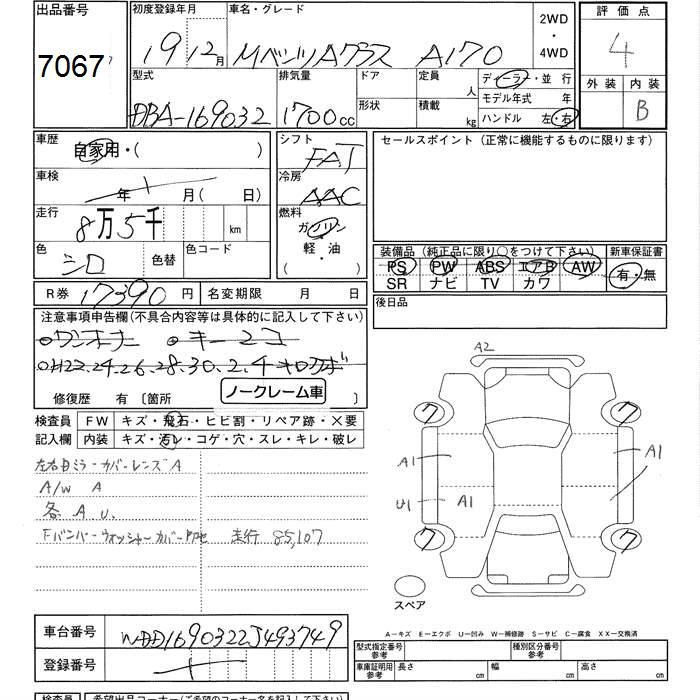 出品番号 初度登録年月 車名・グレード 2WD・4WD 評価点
7067 19 12月 Mベンツ Aクラス A170 4
型式 排気量 ドア 定員 人 ディーラー・並行 外装 内装
形状 積載 kg モデル年式 年
DBA-169032 1700cc ハンドル 左・右 B
車歴 自家用・( ) シフト FAT セールスポイント(正常に機能するものに限ります)
車検 年 月(日) 冷房 AAC
走行 8万5千 km 燃料 ガソリン
軽・油
( )
色 シロ 色替 色コード
装備品(純正品に限り○をつけて下さい) 新車保証書
PS PW ABS エアB AW 有・無
SR ナビ TV カワ
R券 17390円 名変期限 月 日 後日品
注意事項申告欄(不具合内容等は具体的に記入して下さい)
ワンオーナー キー2コ
H22.24.26.28.30.2.4 キロクボ
修復歴 有〔箇所 〕
ノークレーム車
検査員 FW キズ・飛石・ヒビ割・リペア跡・X要
記入欄 内装 キズ・汚レ・コゲ・穴・スレ・キレ・破レ
左右Dミラーカバーレンズ A
A/W A
各 A.U.
Fバンパーウォッシャーカバー 走行 85,107
A2
ク ク
A1 A1
U1 A1
ク ク
スペア
A-キズ E-エクボ U-凹み W-補修跡 S-サビ C-腐食 XX-交換済
車台番号 WDD1690322J493749
型式指定番号 参考 種別区分番号 参考
登録番号
車庫証明用 参考 長さ cm 幅 cm 高さ cm
検査員 希望出品コーナー(ご希望のコーナー名を記入して下さい)